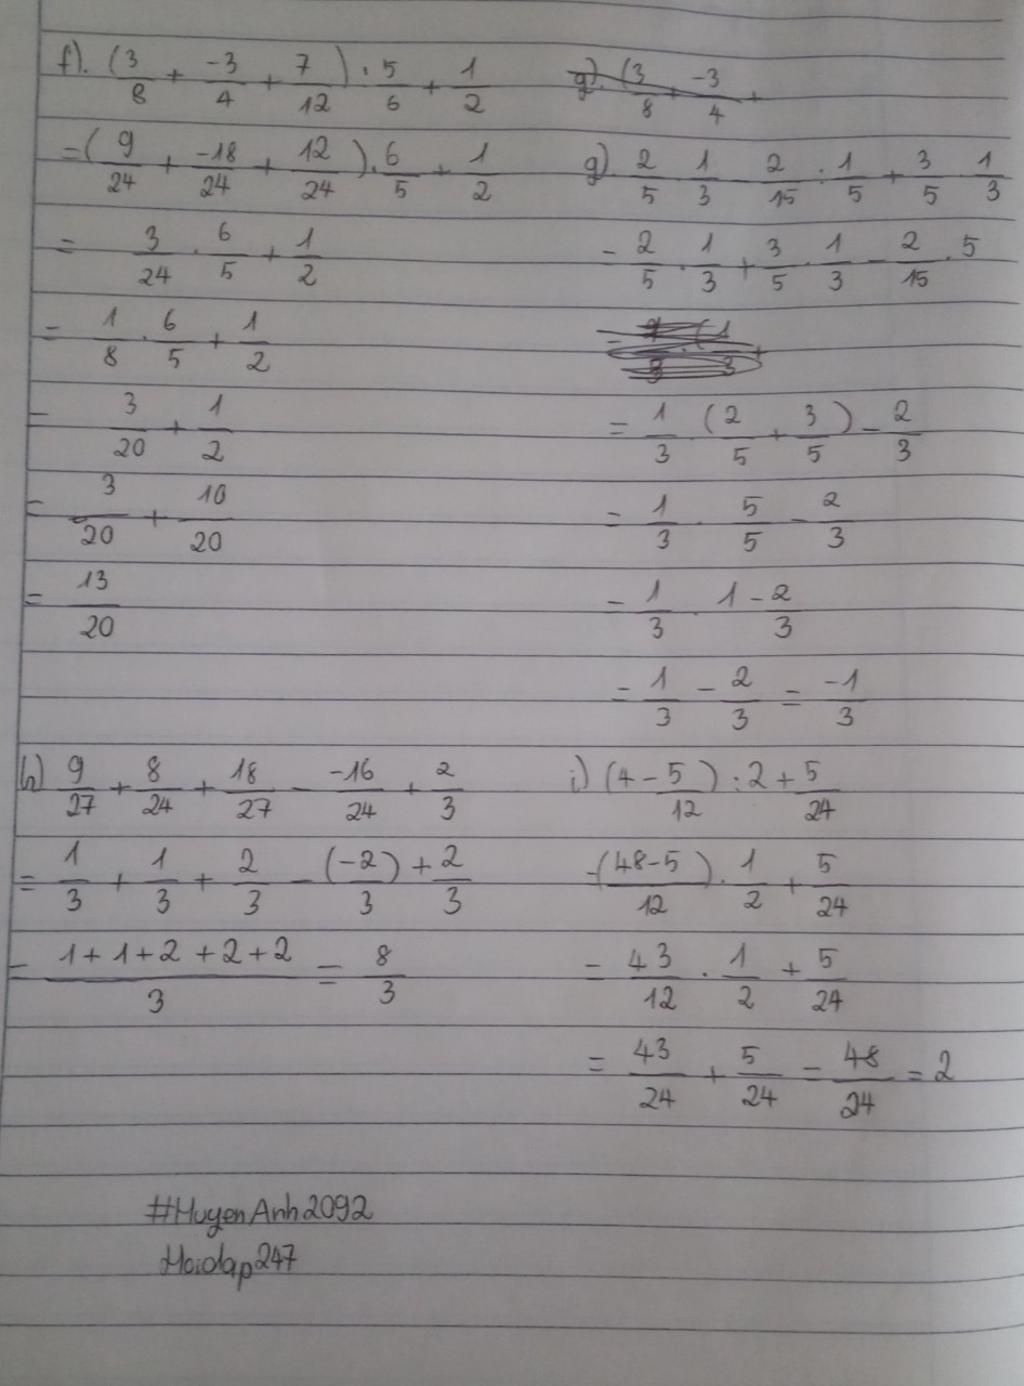 f). (3/8 + -3/4 + 7/12) : 5/6 + 1/2
= (9/24 + -18/24 + 12/24) . 6/5 + 1/2
= 3/24 . 6/5 + 1/2
= 1/8 . 6/5 + 1/2
= 3/20 + 1/2
= 3/20 + 10/20
= 13/20
g). (3/8 + -3/4 +
g) 2/5 . 1/3 - 2/15 : 1/5 + 3/5 . 1/3
= 2/5 . 1/3 + 3/5 . 1/3 - 2/15 . 5
= 1/3 . (2/5 + 3/5) - 2/3
= 1/3 . 5/5 - 2/3
= 1/3 . 1 - 2/3
= 1/3 - 2/3 = -1/3
h) 9/27 + 8/24 + 18/27 - -16/24 + 2/3
= 1/3 + 1/3 + 2/3 - (-2)/3 + 2/3
= 1+1+2+2+2/3 = 8/3
i) (4 - 5/12) : 2 + 5/24
= (48-5)/12 . 1/2 + 5/24
= 43/12 . 1/2 + 5/24
= 43/24 + 5/24 = 48/24 = 2
#HuyenAnh2092
Hoidap247